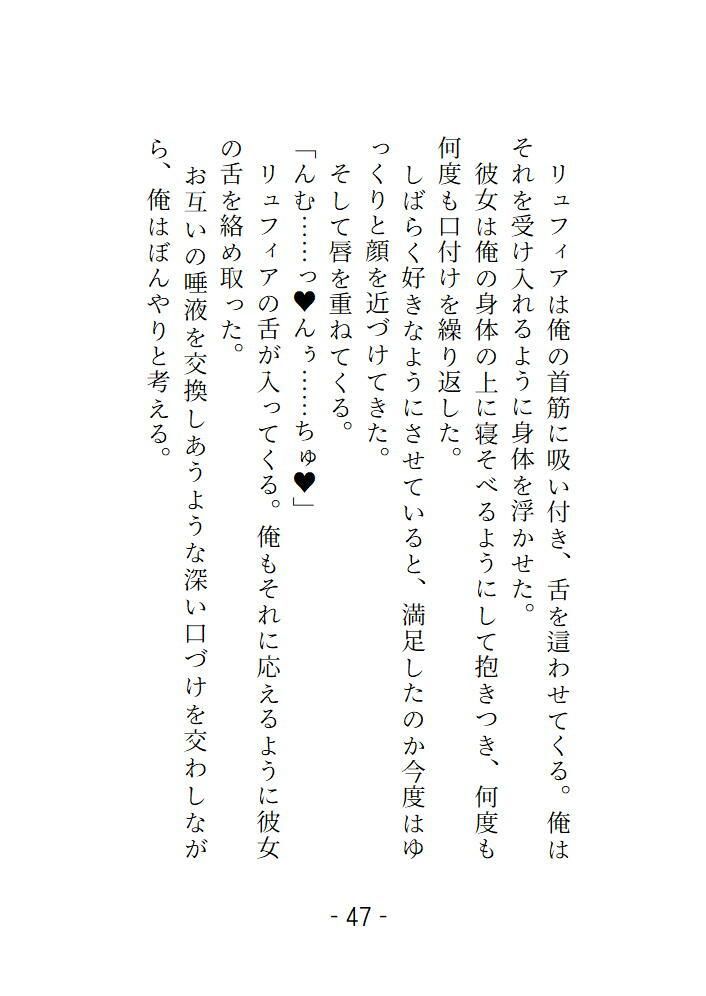 リュフィアは俺の首筋に吸い付き、舌を這わせてくる。俺は
それを受け入れるように身体を浮かせた。
　彼女は俺の身体の上に寝そべるようにして抱きつき、何度も
何度も口付けを繰り返した。
　しばらく好きなようにさせていると、満足したのか今度はゆ
っくりと顔を近づけてきた。
　そして唇を重ねてくる。
「んむ……っ♥んぅ……ちゅ♥」
　リュフィアの舌が入ってくる。俺もそれに応えるように彼女
の舌を絡め取った。
　お互いの唾液を交換しあうような深い口づけを交わしなが
ら、俺はぼんやりと考える。
- 47 -